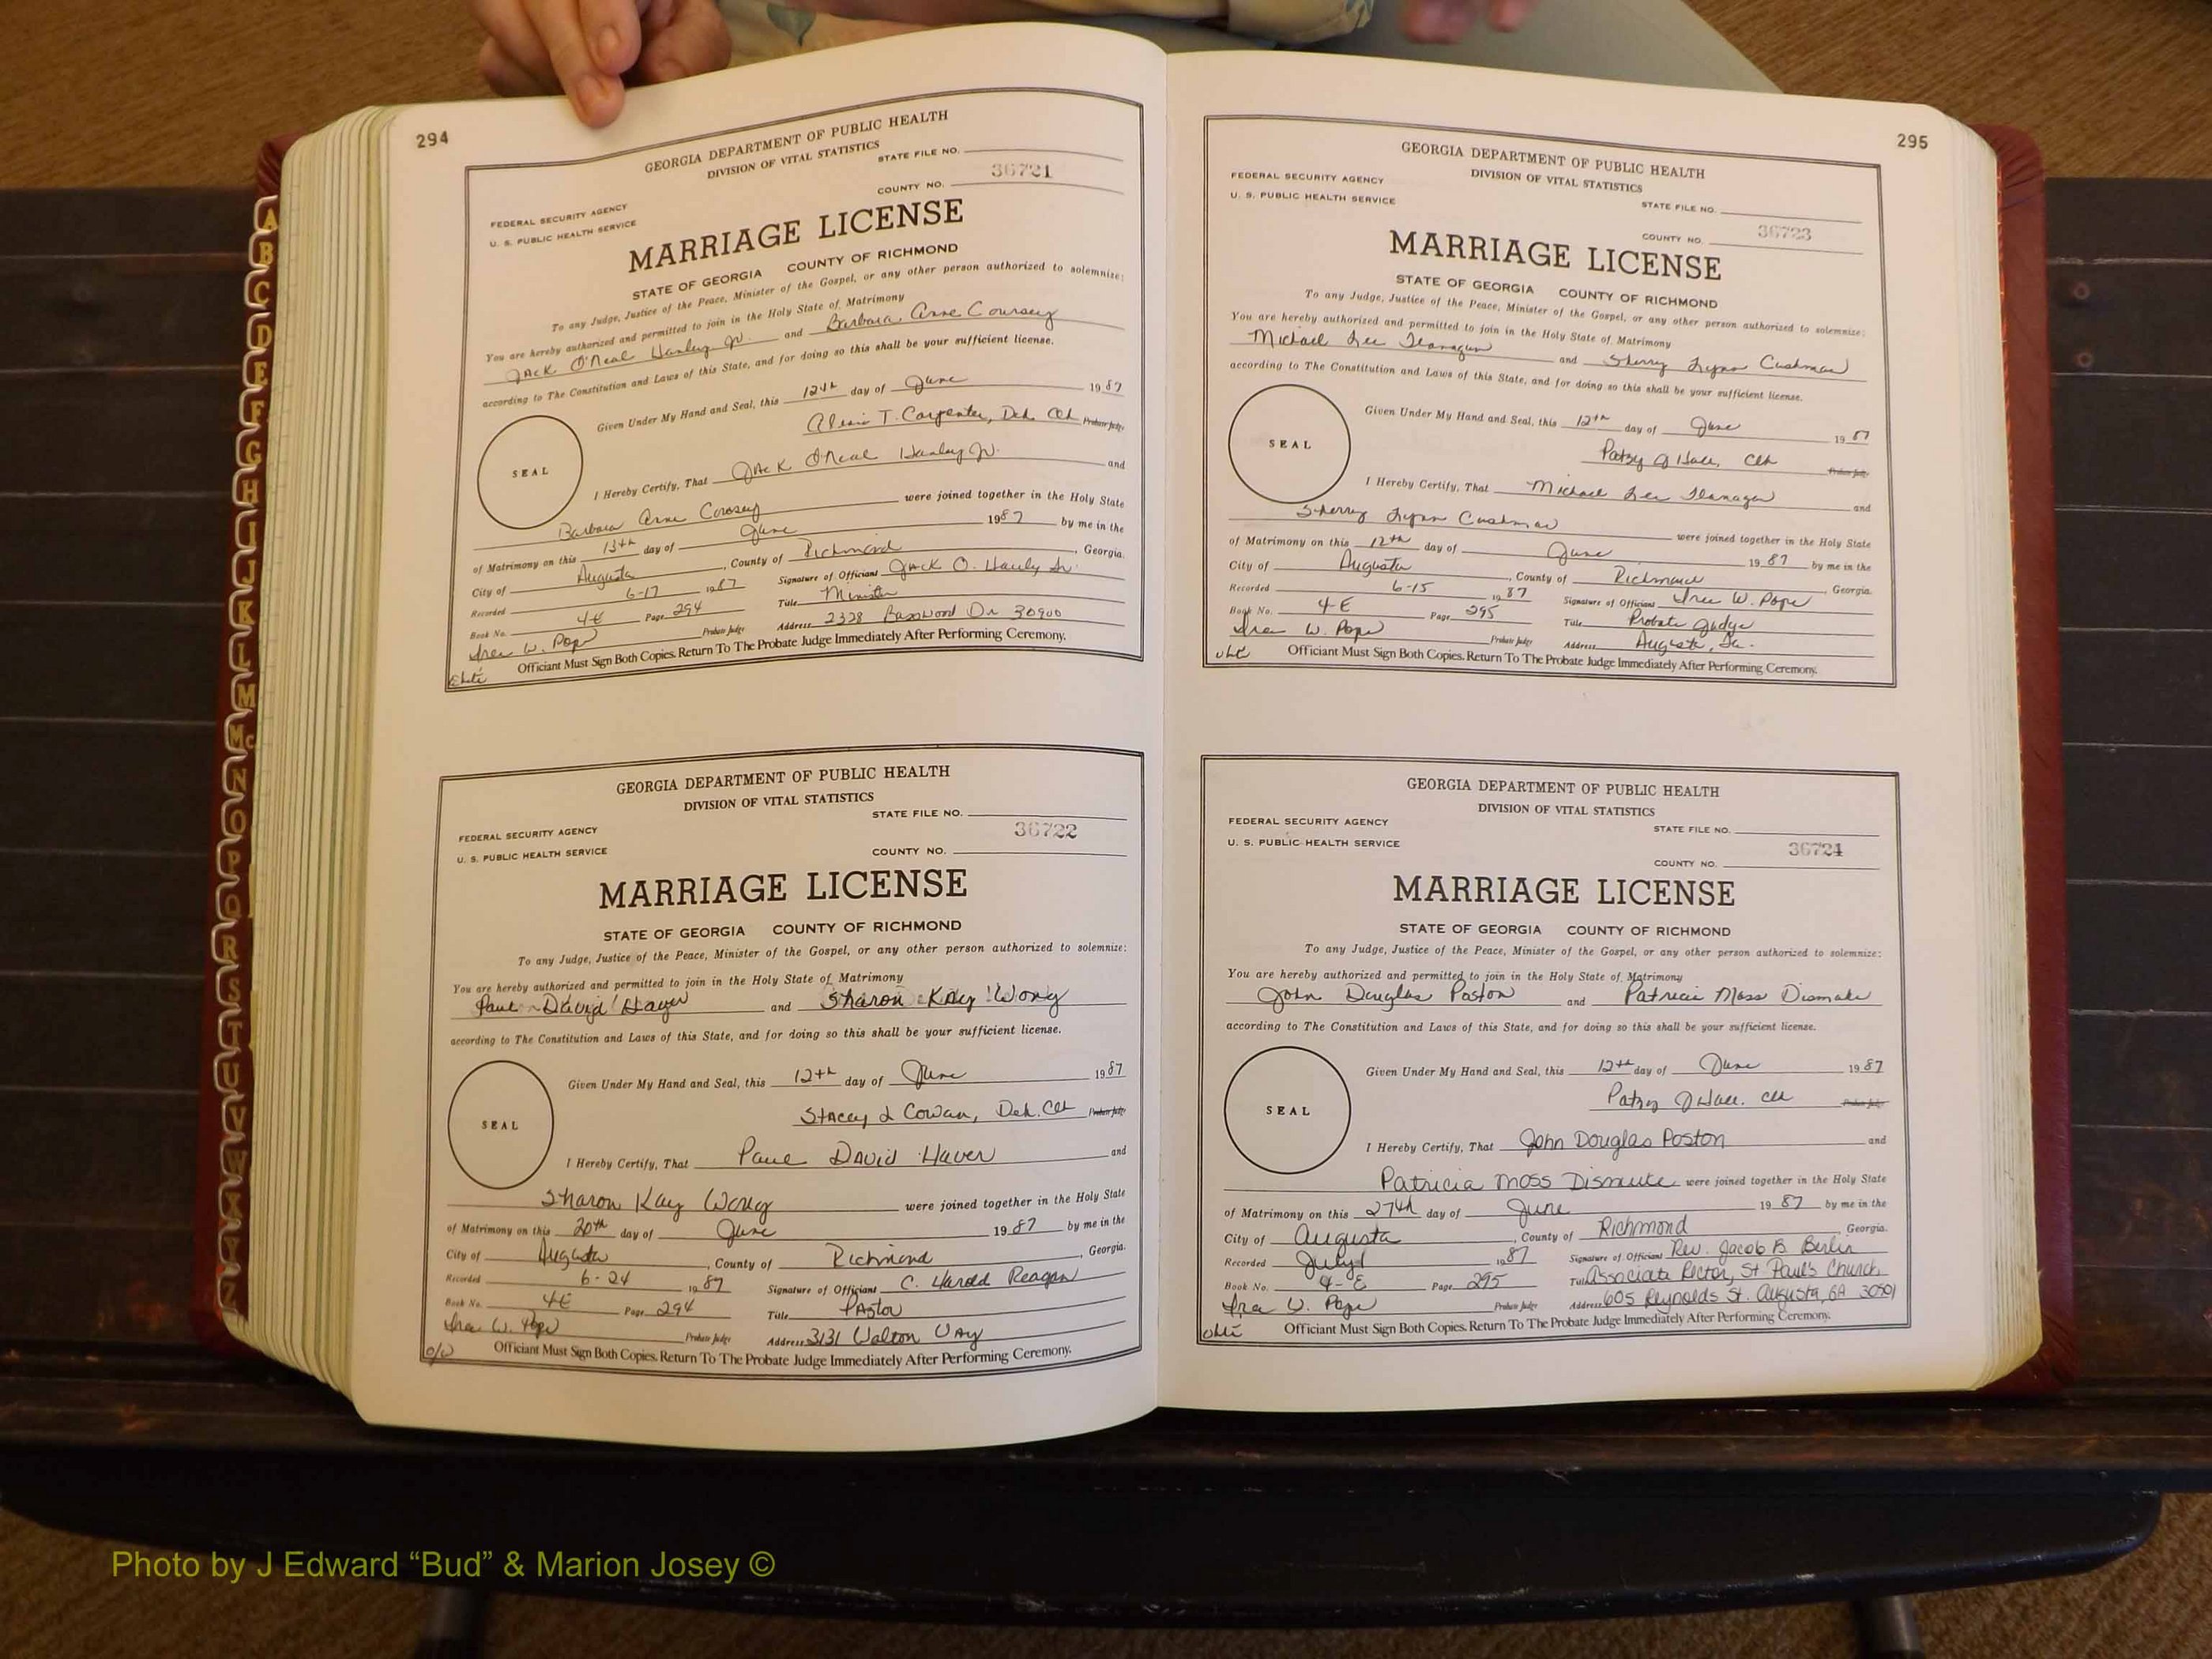 294
GEORGIA DEPARTMENT OF PUBLIC HEALTH
DIVISION OF VITAL STATISTICS
STATE FILE NO.
36721
COUNTY NO.
FEDERAL SECURITY AGENCY
U. S. PUBLIC HEALTH SERVICE
MARRIAGE LICENSE
STATE OF GEORGIA COUNTY OF RICHMOND
To any Judge, Justice of the Peace, Minister of the Gospel, or any other person authorized to solemnize:
You are hereby authorized and permitted to join in the Holy State of Matrimony
Jack O'Neal Hanley Jr. and Barbara Anne Coursey
according to The Constitution and Laws of this State, and for doing so this shall be your sufficient license.
Given Under My Hand and Seal, this 12th day of June 1987
T. Carpenter, Dep. Clk Probate Judge
SEAL
I Hereby Certify, That Jack O'Neal Hanley Jr. and
Barbara Anne Coursey were joined together in the Holy State
of Matrimony on this 13th day of June 1987 by me in the
City of Augusta, County of Richmond, Georgia.
Recorded 6-17 1987 Signature of Officiant Jack O. Hanley Sr.
Book No. 4E Page 294 Title Minister
Ira W. Pope Probate Judge Address 2328 Basswood Dr 30906
Officiant Must Sign Both Copies. Return To The Probate Judge Immediately After Performing Ceremony.
GEORGIA DEPARTMENT OF PUBLIC HEALTH
DIVISION OF VITAL STATISTICS
STATE FILE NO.
36722
FEDERAL SECURITY AGENCY
U. S. PUBLIC HEALTH SERVICE
COUNTY NO.
MARRIAGE LICENSE
STATE OF GEORGIA COUNTY OF RICHMOND
To any Judge, Justice of the Peace, Minister of the Gospel, or any other person authorized to solemnize:
You are hereby authorized and permitted to join in the Holy State of Matrimony
Paul David Haver and Sharon Kay Wong
according to The Constitution and Laws of this State, and for doing so this shall be your sufficient license.
Given Under My Hand and Seal, this 12th day of June 1987
Stacey L Cowan, Dep. Clk Probate Judge
SEAL
I Hereby Certify, That Paul David Haver and
Sharon Kay Wong were joined together in the Holy State
of Matrimony on this 20th day of June 1987 by me in the
City of Augusta, County of Richmond, Georgia.
Recorded 6-24 1987 Signature of Officiant C. Harold Reagan
Book No. 4E Page 294 Title Pastor
Ira W. Pope Probate Judge Address 3131 Walton Way
o/w
Officiant Must Sign Both Copies. Return To The Probate Judge Immediately After Performing Ceremony.
295
GEORGIA DEPARTMENT OF PUBLIC HEALTH
DIVISION OF VITAL STATISTICS
FEDERAL SECURITY AGENCY
U. S. PUBLIC HEALTH SERVICE
STATE FILE NO.
36723
COUNTY NO.
MARRIAGE LICENSE
STATE OF GEORGIA COUNTY OF RICHMOND
To any Judge, Justice of the Peace, Minister of the Gospel, or any other person authorized to solemnize:
You are hereby authorized and permitted to join in the Holy State of Matrimony
Michael Lee Flanagan and Sherry Lynn Cushman
according to The Constitution and Laws of this State, and for doing so this shall be your sufficient license.
Given Under My Hand and Seal, this 12th day of June 1987
Patsy J Hall, Clk Probate Judge
SEAL
I Hereby Certify, That Michael Lee Flanagan and
Sherry Lynn Cushman were joined together in the Holy State
of Matrimony on this 12th day of June 1987 by me in the
City of Augusta, County of Richmond, Georgia.
Recorded 6-15 1987 Signature of Officiant Ira W. Pope
Book No. 4-E Page 295 Title Probate Judge
Ira W. Pope Probate Judge Address Augusta, Ga.
Officiant Must Sign Both Copies. Return To The Probate Judge Immediately After Performing Ceremony.
GEORGIA DEPARTMENT OF PUBLIC HEALTH
DIVISION OF VITAL STATISTICS
FEDERAL SECURITY AGENCY
U. S. PUBLIC HEALTH SERVICE
STATE FILE NO.
36724
COUNTY NO.
MARRIAGE LICENSE
STATE OF GEORGIA COUNTY OF RICHMOND
To any Judge, Justice of the Peace, Minister of the Gospel, or any other person authorized to solemnize:
You are hereby authorized and permitted to join in the Holy State of Matrimony
John Douglas Poston and Patricia Moss Dismuke
according to The Constitution and Laws of this State, and for doing so this shall be your sufficient license.
Given Under My Hand and Seal, this 12th day of June 1987
Patsy J Hall, Clk Probate Judge
SEAL
I Hereby Certify, That John Douglas Poston and
Patricia Moss Dismuke were joined together in the Holy State
of Matrimony on this 27th day of June 1987 by me in the
City of Augusta, County of Richmond, Georgia.
Recorded July 1 1987 Signature of Officiant Rev. Jacob B. Berlin
Book No. 4-E Page 295 Title Associate Rector, St Paul's Church
Ira W. Pope Probate Judge Address 605 Reynolds St. Augusta, GA 30901
Officiant Must Sign Both Copies. Return To The Probate Judge Immediately After Performing Ceremony.
A
B
C
D
E
F
G
H
I
J
K
L
M
Mc
N
O
P
Q
R
S
T
U
V
W
X
Y
Z
Photo by J Edward “Bud” & Marion Josey ©